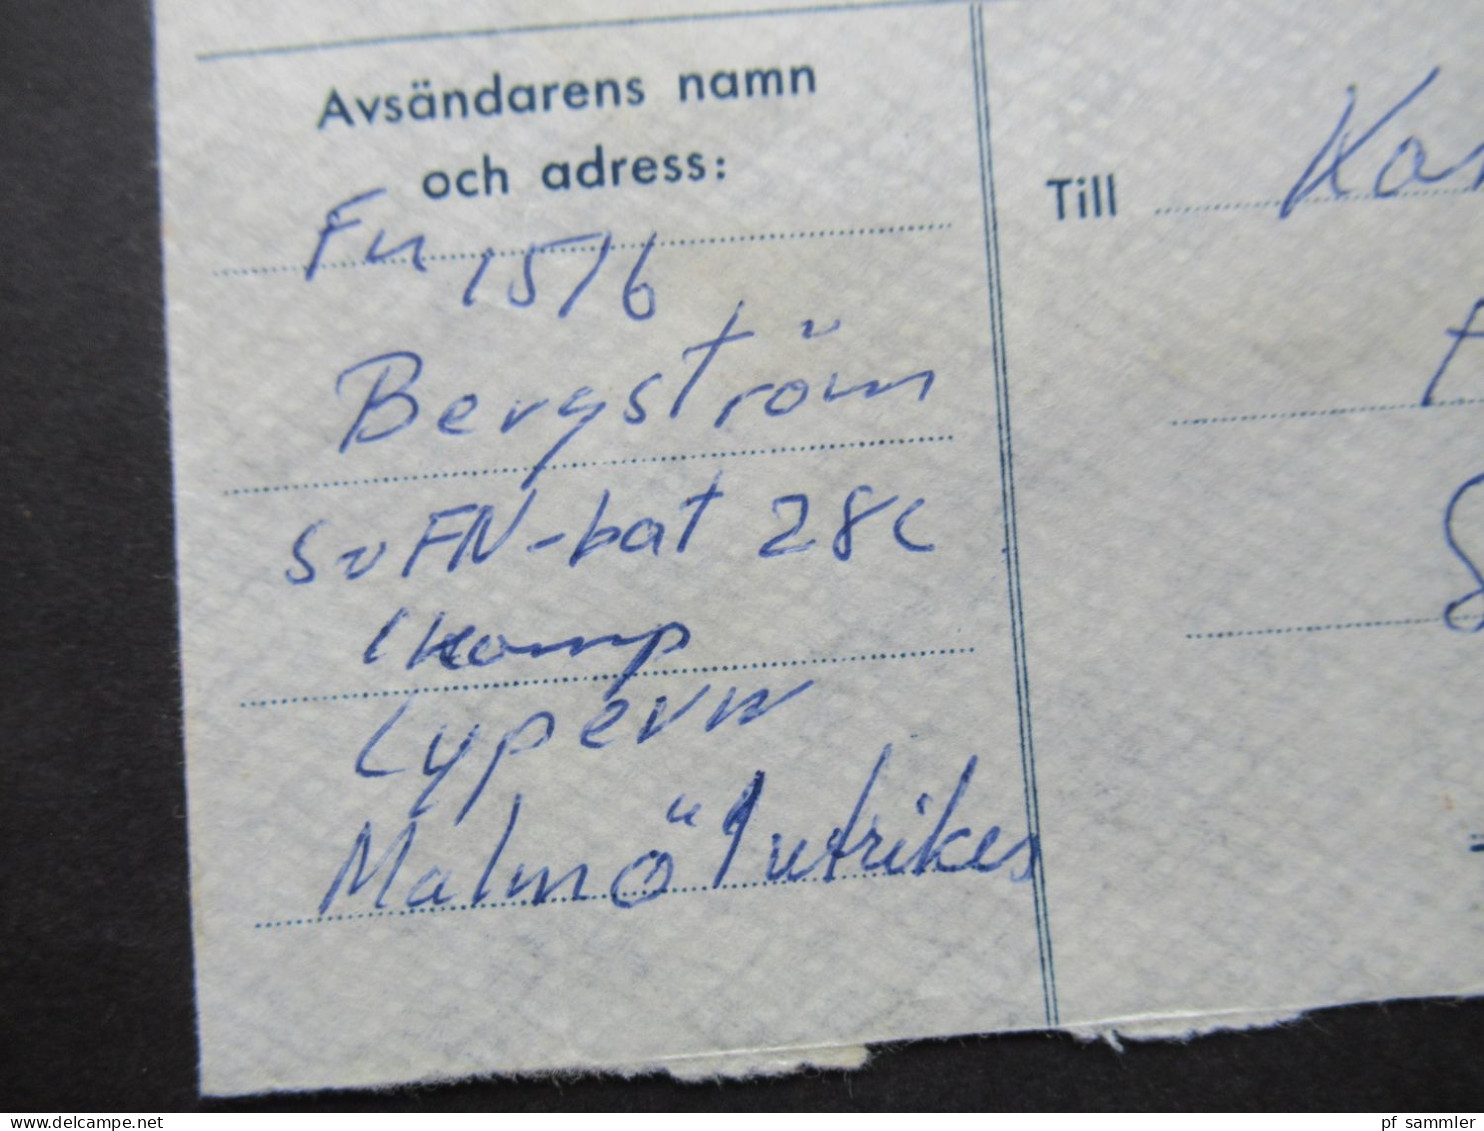 Avsändarens namn
och adress:
Fn 1516
Bergström
SvFN-bat 28C
1 komp
Cypern
Malmö 1 utrikes
Till
pf sammler